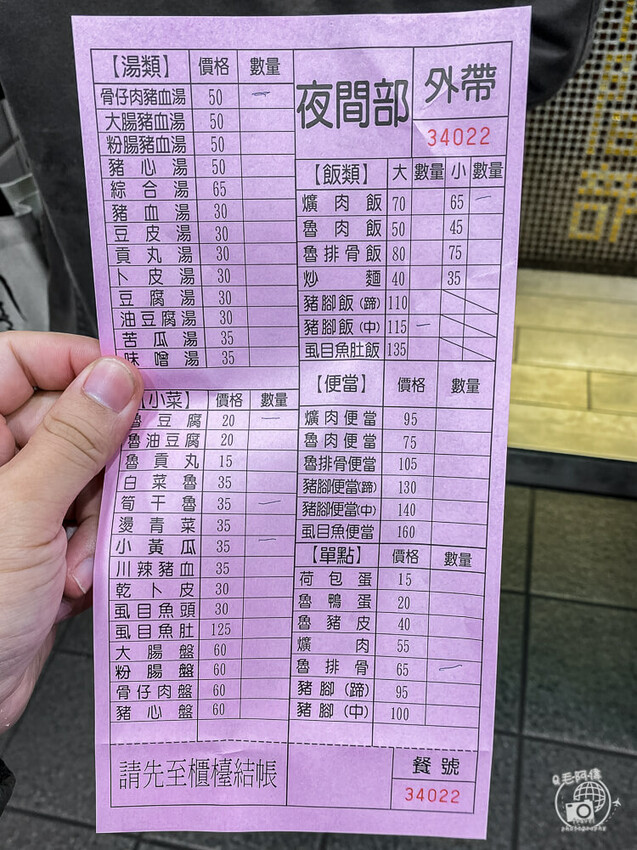 【湯類】 價格 數量
骨仔肉豬血湯 50 一
大腸豬血湯 50
粉腸豬血湯 50
豬心湯 50
綜合湯 65
豬血湯 30
豆皮湯 30
貢丸湯 30
卜皮湯 30
豆腐湯 30
油豆腐湯 30
苦瓜湯 35
味噌湯 35
【小菜】 價格 數量
魯豆腐 20 一
魯油豆腐 20
魯貢丸 15
白菜魯 35
筍干魯 35 一
燙青菜 35
小黃瓜 35 一
川辣豬血 35
乾卜皮 30
虱目魚頭 30
虱目魚肚 125
大腸盤 60
粉腸盤 60
骨仔肉盤 60
豬心盤 60
夜間部 外帶
34022
【飯類】 大 數量 小 數量
爌肉飯 70 65 一
魯肉飯 50 45
魯排骨飯 80 75
炒麵 40 35
豬腳飯(蹄) 110
豬腳飯(中) 115 一
虱目魚肚飯 135
【便當】 價格 數量
爌肉便當 95
魯肉便當 75
魯排骨便當 105
豬腳便當(蹄) 130
豬腳便當(中) 140
虱目魚便當 160
【單點】 價格 數量
荷包蛋 15
魯鴨蛋 20
魯豬皮 40
爌肉 55
魯排骨 65 一
豬腳(蹄) 95
豬腳(中) 100
請先至櫃檯結帳
餐號
34022
毛阿偉
photography